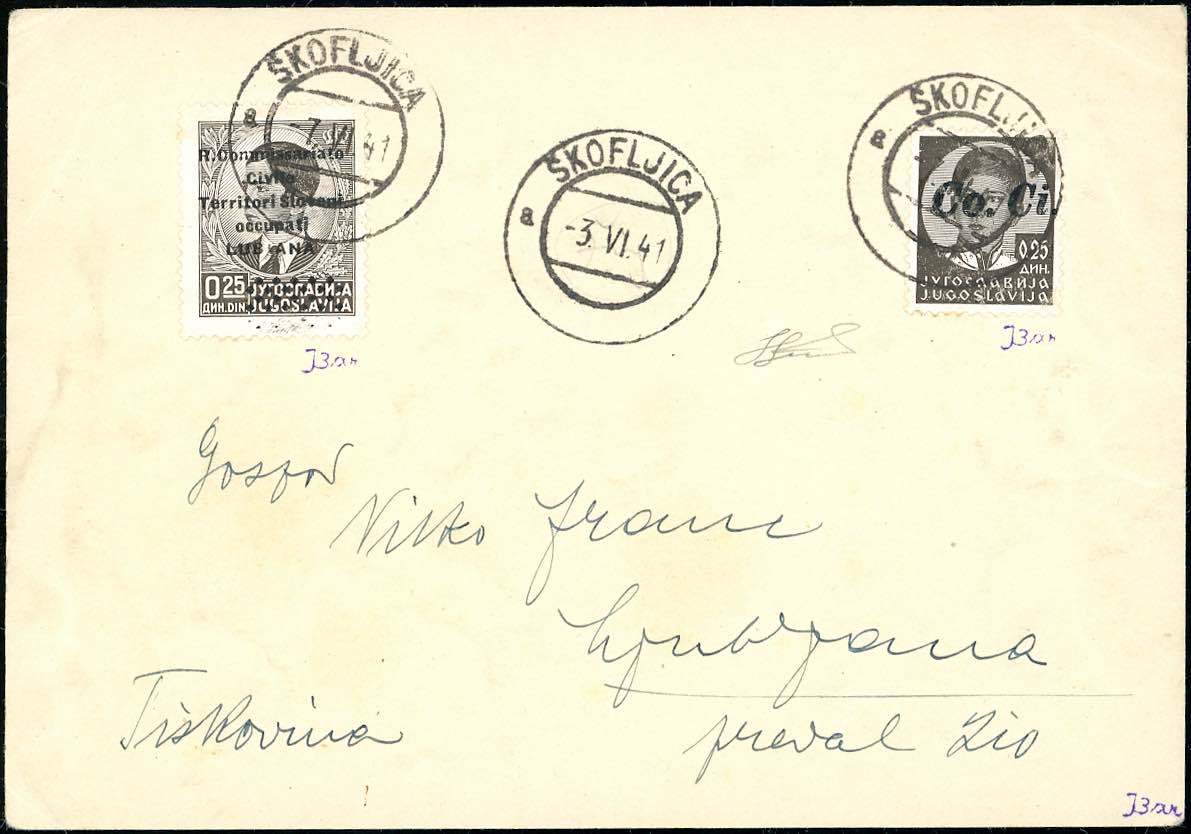 ŠKOFLJICA
a
-7. VI. 41
R. Commissariato
Civile
Territori Sloveni
occupati
LUBIANA
0.25 ЈУГОСЛАВИЈА
ДИН. DIN. JUGOSLAVIJA
JBar
ŠKOFLJICA
a
-3. VI. 41
ŠKOFLJICA
a
Co. Ci.
0.25
ДИН.
ЈУГОСЛАВИЈА
JUGOSLAVIJA
JBar
Gospod
Franc
Ljubljana
Tiskovina
JBar